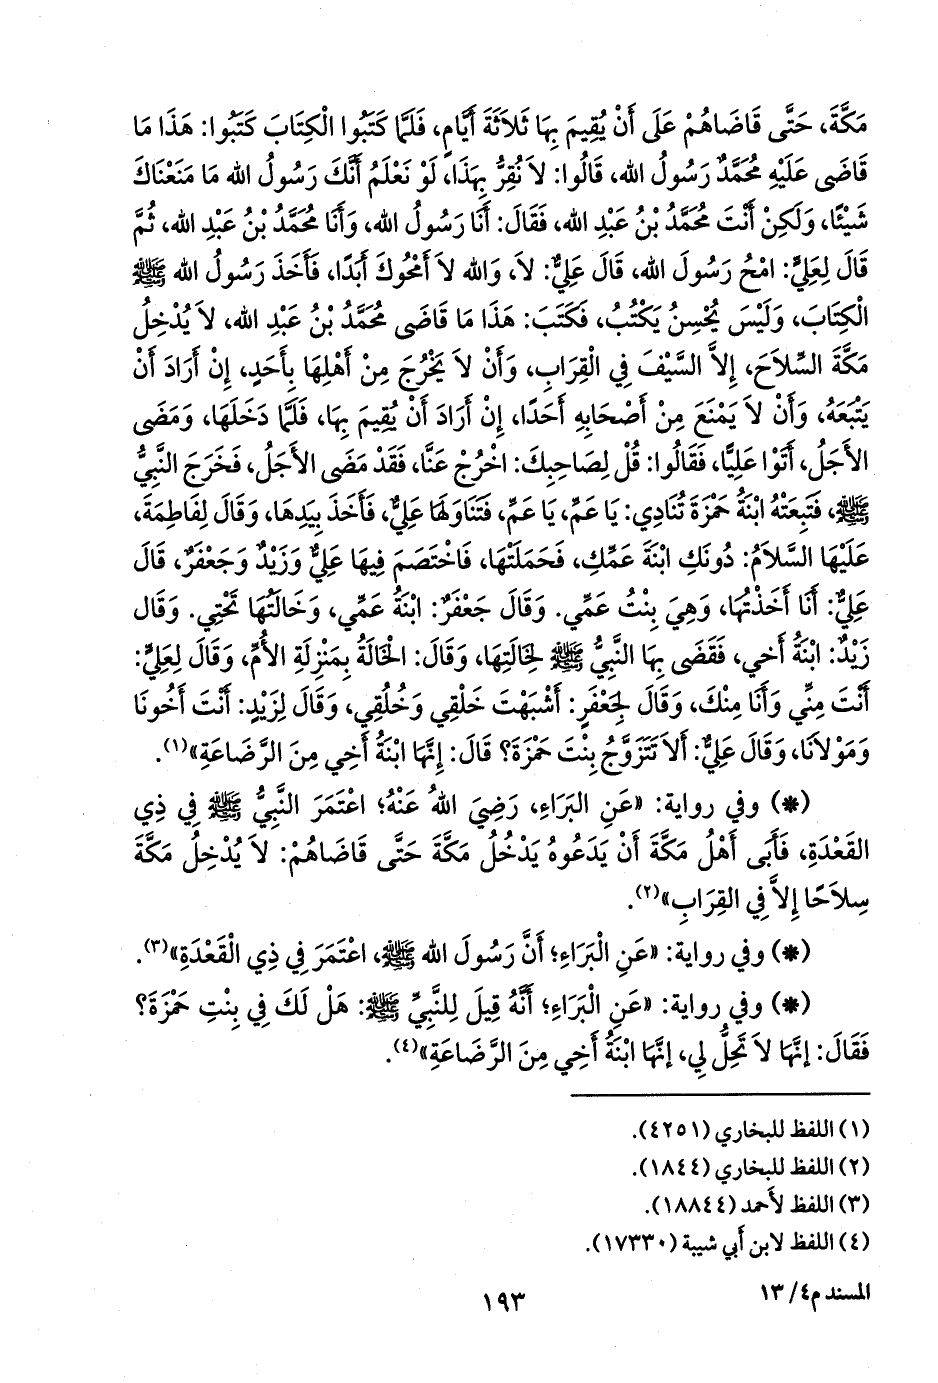 مَكَّةَ، حَتَّى قَاضَاهُمْ عَلَى أَنْ يُقِيمَ بِهَا ثَلَاثَةَ أَيَّامٍ، فَلَمَّا كَتَبُوا الْكِتَابَ كَتَبُوا: هَذَا مَا
قَاضَى عَلَيْهِ مُحَمَّدٌ رَسُولُ الله، قَالُوا: لاَ نُقِرُّ بِهَذَا، لَوْ نَعْلَمُ أَنَّكَ رَسُولُ الله مَا مَنَعْنَاكَ
شَيْئًا، وَلَكِنْ أَنْتَ مُحَمَّدُ بْنُ عَبْدِ الله، فَقَالَ: أَنَا رَسُولُ الله، وَأَنَا مُحَمَّدُ بْنُ عَبْدِ الله، ثُمَّ
قَالَ لِعَلِيٍّ: امْحُ رَسُولَ الله، قَالَ عَلِيٌّ: لاَ، وَالله لاَ أَمْحُوكَ أَبَدًا، فَأَخَذَ رَسُولُ الله ﷺ
الْكِتَابَ، وَلَيْسَ يُحْسِنُ يَكْتُبُ، فَكَتَبَ: هَذَا مَا قَاضَى مُحَمَّدُ بْنُ عَبْدِ الله، لاَ يُدْخِلُ
مَكَّةَ السِّلاَحَ، إِلاَّ السَّيْفَ فِي الْقِرَابِ، وَأَنْ لاَ يَخْرُجَ مِنْ أَهْلِهَا بِأَحَدٍ، إِنْ أَرَادَ أَنْ
يَتْبَعَهُ، وَأَنْ لاَ يَمْنَعَ مِنْ أَصْحَابِهِ أَحَدًا، إِنْ أَرَادَ أَنْ يُقِيمَ بِهَا، فَلَمَّا دَخَلَهَا، وَمَضَى
الأَجَلُ، أَتَوْا عَلِيًّا، فَقَالُوا: قُلْ لِصَاحِبِكَ: اخْرُجْ عَنَّا، فَقَدْ مَضَى الأَجَلُ، فَخَرَجَ النَّبِيُّ
ﷺ، فَتَبِعَتْهُ ابْنَةُ حَمْزَةَ تُنَادِي: يَا عَمِّ، يَا عَمِّ، فَتَنَاوَلَهَا عَلِيٌّ، فَأَخَذَ بِيَدِهَا، وَقَالَ لِفَاطِمَةَ،
عَلَيْهَا السَّلاَمُ: دُونَكِ ابْنَةَ عَمِّكِ، فَحَمَلَتْهَا، فَاخْتَصَمَ فِيهَا عَلِيٌّ وَزَيْدٌ وَجَعْفَرٌ، قَالَ
عَلِيٌّ: أَنَا أَخَذْتُهَا، وَهِيَ بِنْتُ عَمِّي. وَقَالَ جَعْفَرٌ: ابْنَةُ عَمِّي، وَخَالَتُهَا تَحْتِي. وَقَالَ
زَيْدٌ: ابْنَةُ أَخِي، فَقَضَى بِهَا النَّبِيُّ ﷺ لِخَالَتِهَا، وَقَالَ: الْخَالَةُ بِمَنْزِلَةِ الأُمِّ، وَقَالَ لِعَلِيٍّ:
أَنْتَ مِنِّي وَأَنَا مِنْكَ، وَقَالَ لِجَعْفَرٍ: أَشْبَهْتَ خَلْقِي وَخُلُقِي، وَقَالَ لِزَيْدٍ: أَنْتَ أَخُونَا
وَمَوْلاَنَا، وَقَالَ عَلِيٌّ: أَلاَ تَتَزَوَّجُ بِنْتَ حَمْزَةَ؟ قَالَ: إِنَّهَا ابْنَةُ أَخِي مِنَ الرَّضَاعَةِ»(١).
(*) وفي رواية: «عَنِ البَرَاءِ، رَضِيَ اللهُ عَنْهُ؛ اعْتَمَرَ النَّبِيُّ ﷺ فِي ذِي
القَعْدَةِ، فَأَبَى أَهْلُ مَكَّةَ أَنْ يَدَعُوهُ يَدْخُلُ مَكَّةَ حَتَّى قَاضَاهُمْ: لاَ يُدْخِلُ مَكَّةَ
سِلاَحًا إِلاَّ فِي القِرَابِ»(٢).
(*) وفي رواية: «عَنِ الْبَرَاءِ؛ أَنَّ رَسُولَ الله ﷺ، اعْتَمَرَ فِي ذِي الْقَعْدَةِ»(٣).
(*) وفي رواية: «عَنِ الْبَرَاءِ؛ أَنَّهُ قِيلَ لِلنَّبِيِّ ﷺ: هَلْ لَكَ فِي بِنْتِ حَمْزَةَ؟
فَقَالَ: إِنَّهَا لاَ تَحِلُّ لِي، إِنَّهَا ابْنَةُ أَخِي مِنَ الرَّضَاعَةِ»(٤).
(١) اللفظ للبخاري (٤٢٥١).
(٢) اللفظ للبخاري (١٨٤٤).
(٣) اللفظ لأحمد (١٨٨٤٤).
(٤) اللفظ لابن أبي شيبة (١٧٣٣٠).
المسند م٤/ ١٣
١٩٣